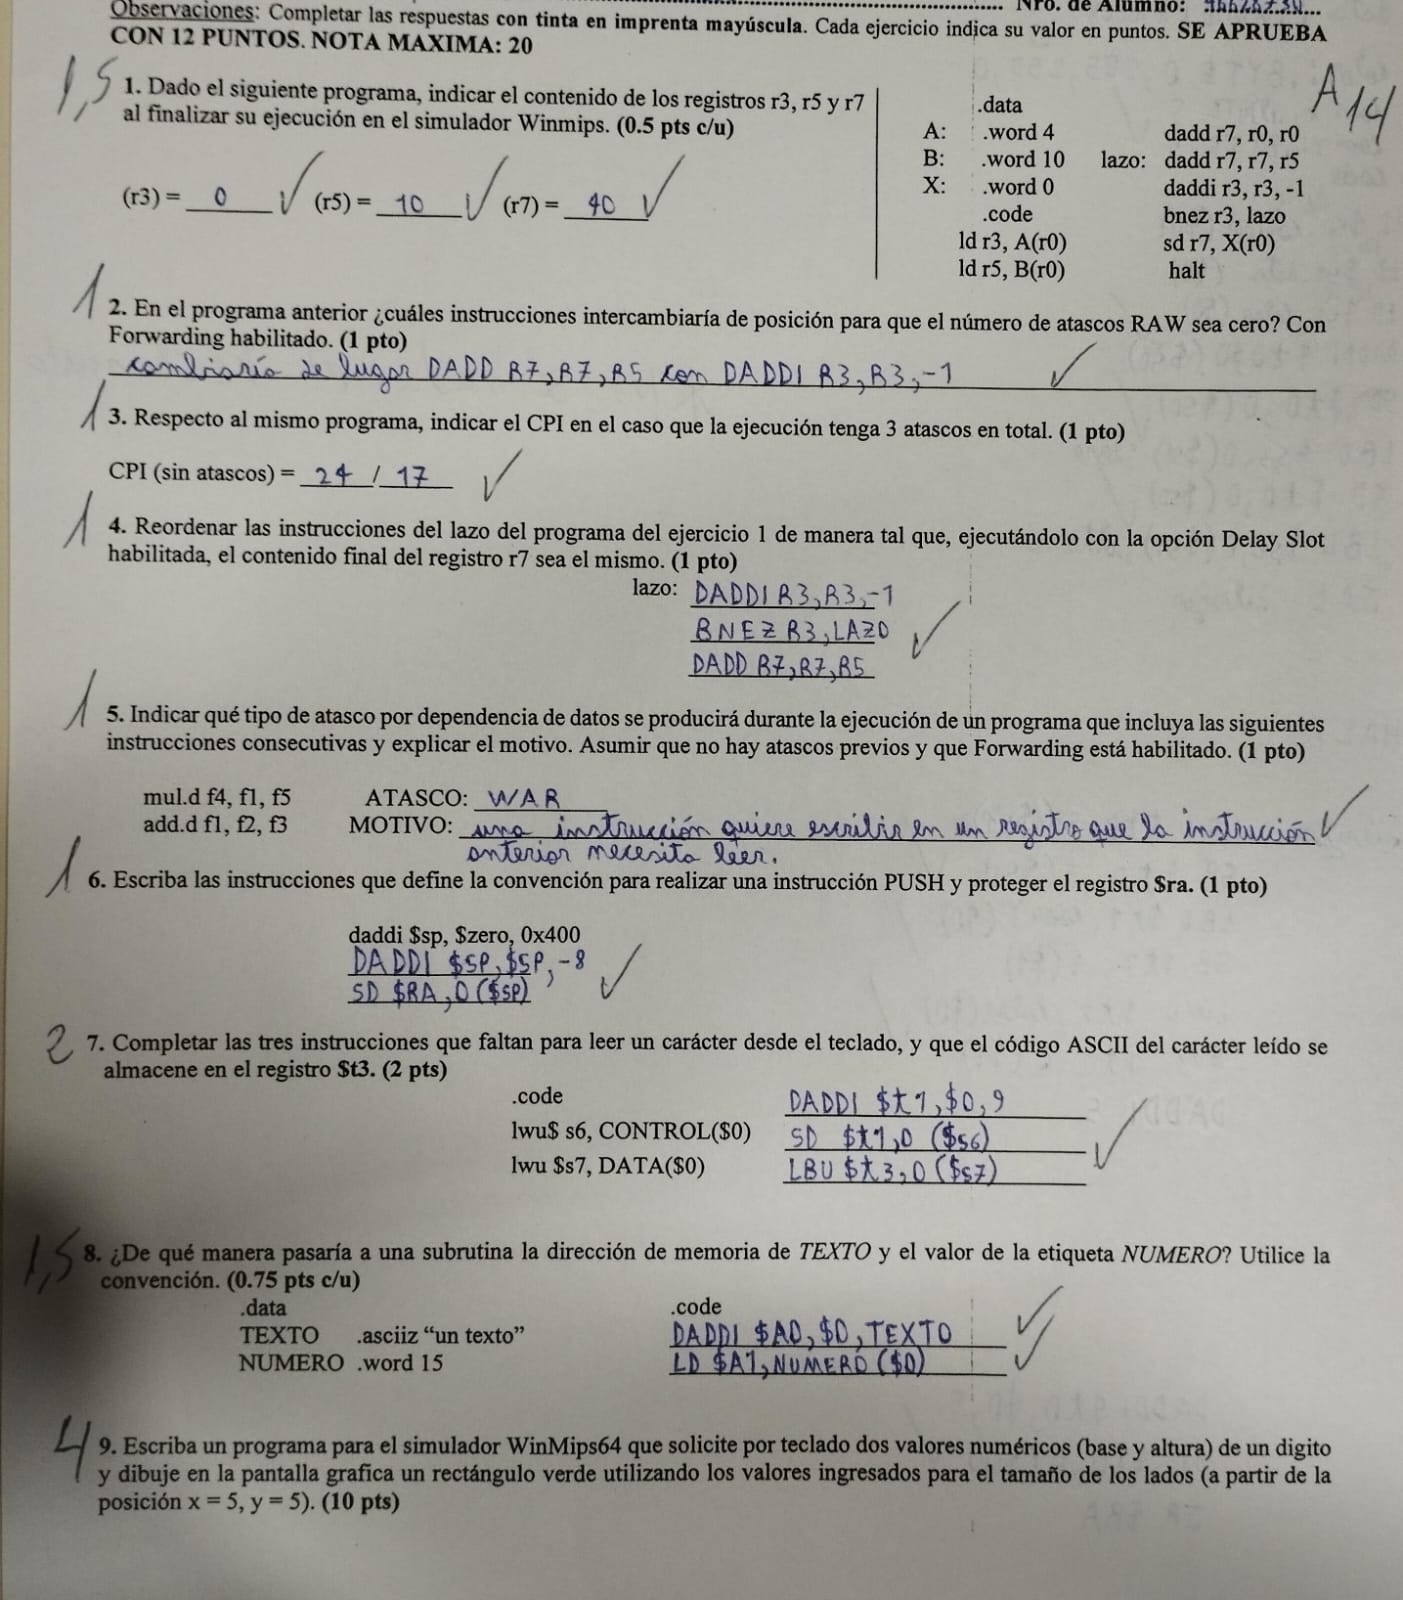 Nro. de Alumno:
Observaciones: Completar las respuestas con tinta en imprenta mayúscula. Cada ejercicio indica su valor en puntos. SE APRUEBA
CON 12 PUNTOS. NOTA MAXIMA: 20
A 14
1,5
1. Dado el siguiente programa, indicar el contenido de los registros r3, r5 y r7
al finalizar su ejecución en el simulador Winmips. (0.5 pts c/u)
(r3) = 0 ✓ (r5) = 10 ✓ (r7) = 40 ✓
.data
A: .word 4 dadd r7, r0, r0
B: .word 10 lazo: dadd r7, r7, r5
X: .word 0 daddi r3, r3, -1
.code bnez r3, lazo
ld r3, A(r0) sd r7, X(r0)
ld r5, B(r0) halt
1
2. En el programa anterior ¿cuáles instrucciones intercambiaría de posición para que el número de atascos RAW sea cero? Con
Forwarding habilitado. (1 pto)
cambiaría de lugar DADD R7,R7,R5 con DADDI R3,R3,-1 ✓
1
3. Respecto al mismo programa, indicar el CPI en el caso que la ejecución tenga 3 atascos en total. (1 pto)
CPI (sin atascos) = 24 / 17 ✓
1
4. Reordenar las instrucciones del lazo del programa del ejercicio 1 de manera tal que, ejecutándolo con la opción Delay Slot
habilitada, el contenido final del registro r7 sea el mismo. (1 pto)
lazo: DADDI R3,R3,-1
BNEZ R3,LAZO ✓
DADD R7,R7,R5
1
5. Indicar qué tipo de atasco por dependencia de datos se producirá durante la ejecución de un programa que incluya las siguientes
instrucciones consecutivas y explicar el motivo. Asumir que no hay atascos previos y que Forwarding está habilitado. (1 pto)
mul.d f4, f1, f5 ATASCO: WAR
add.d f1, f2, f3 MOTIVO: una instrucción quiere escribir en un registro que la instrucción ✓
anterior necesita leer.
1
6. Escriba las instrucciones que define la convención para realizar una instrucción PUSH y proteger el registro $ra. (1 pto)
daddi $sp, $zero, 0x400
DADDI $SP,$SP,-8 ✓
SD $RA,0($SP)
2
7. Completar las tres instrucciones que faltan para leer un carácter desde el teclado, y que el código ASCII del carácter leído se
almacene en el registro $t3. (2 pts)
.code DADDI $t1,$0,9
lwu$ s6, CONTROL($0) SD $t1,0 ($S6) ✓
lwu $s7, DATA($0) LBU $t3,0($S7)
1,5
8. ¿De qué manera pasaría a una subrutina la dirección de memoria de TEXTO y el valor de la etiqueta NUMERO? Utilice la
convención. (0.75 pts c/u)
.data .code
TEXTO .asciiz “un texto” DADDI $A0,$0,TEXTO ✓
NUMERO .word 15 LD $A1,NUMERO($0) ✓
4
9. Escriba un programa para el simulador WinMips64 que solicite por teclado dos valores numéricos (base y altura) de un digito
y dibuje en la pantalla grafica un rectángulo verde utilizando los valores ingresados para el tamaño de los lados (a partir de la
posición x = 5, y = 5). (10 pts)